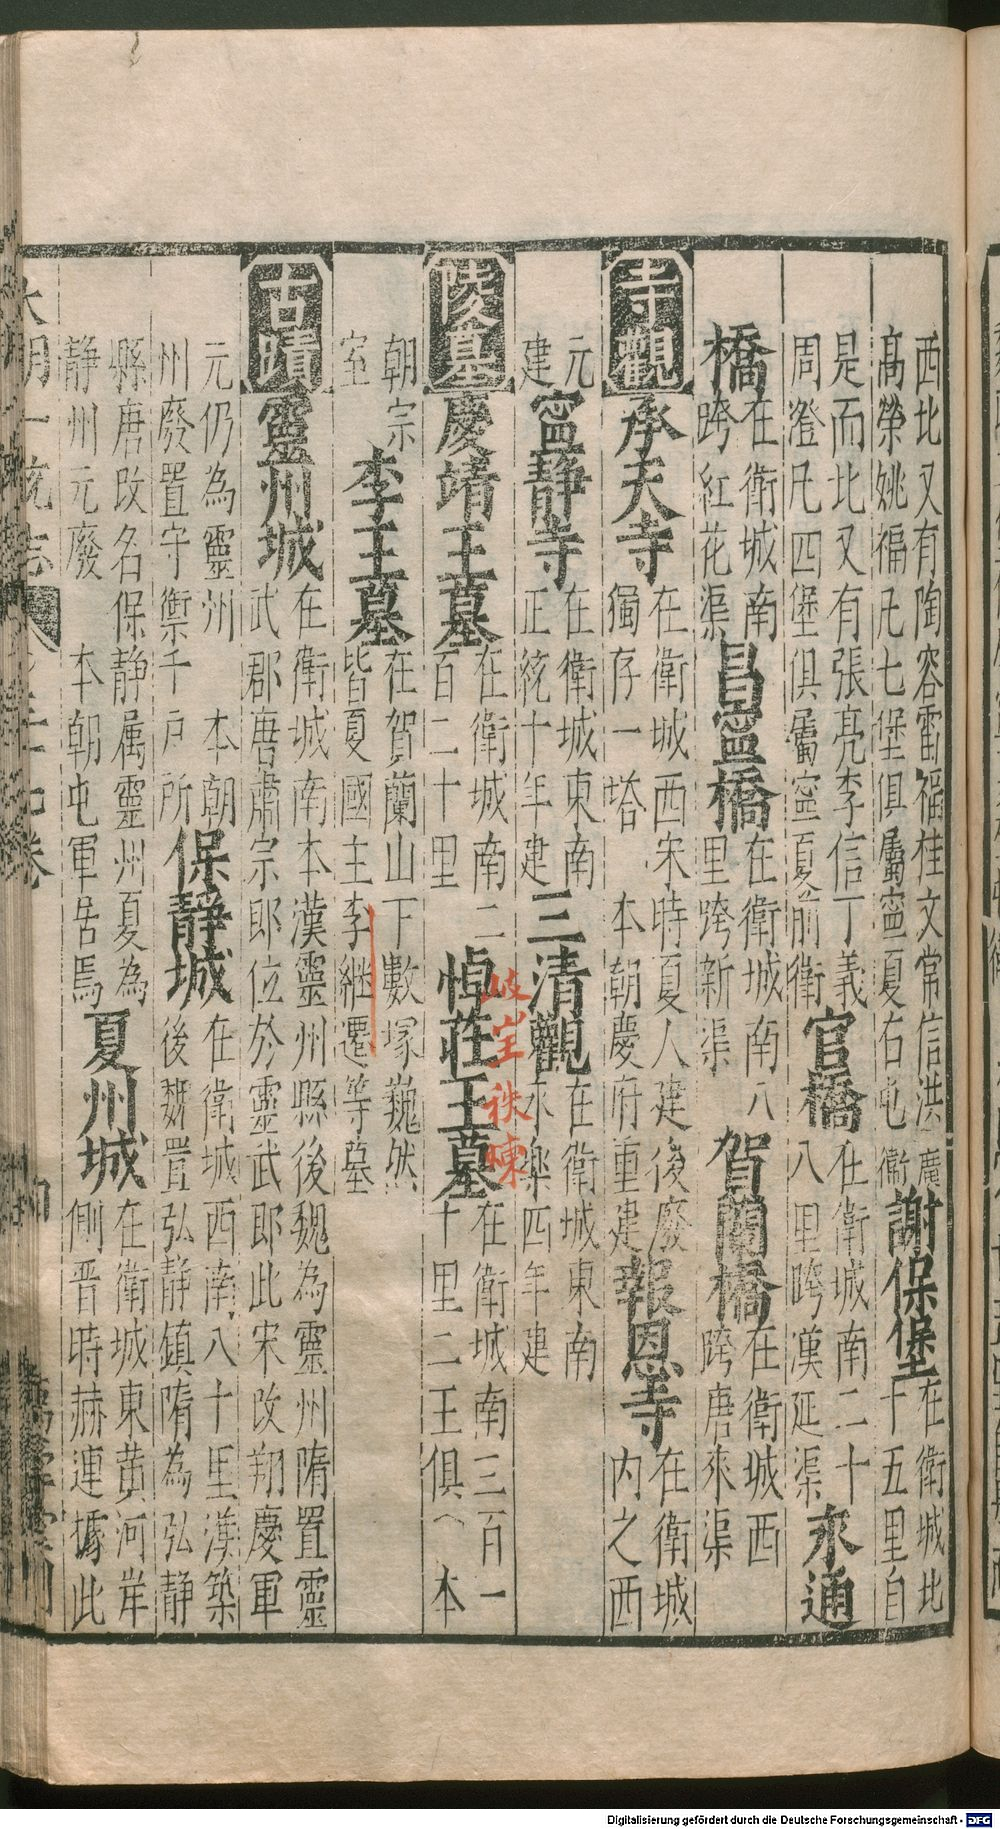 西北又有陶容雷福桂文常信洪廣謝保堡在衛城北
高榮姚福凡七堡俱屬寧夏右屯衛 十五里自
是而北又有張亮李信丁義官橋在衛城南二十永通
周澄凡四堡俱屬寧夏前衛 八里跨漢延渠
橋在衛城南昌寧橋在衛城南八賀蘭橋在衛城西
跨紅花渠 里跨新渠 跨唐來渠
寺觀承天寺在衛城西宋時夏人建後廢報恩寺在衛城
獨存一塔 本朝慶府重建 內之西
元寧靜寺在衛城東南三清觀在衛城東南
建 正統十年建 永樂四年建
陵墓慶靖王墓在衛城南二悼莊王墓在衛城南三百一
百二十里 十里二王俱 本
朝宗李王墓在賀蘭山下數塚巍然
室 皆夏國主李継遷等墓
古蹟靈州城在衛城南本漢靈州縣後魏為靈州隋置靈
武郡唐肅宗即位於靈武即此宋改翔慶軍
元仍為靈州 本朝保靜城在衛城西南八十里漢築
州廢置守禦千戶所 後魏置弘靜鎮隋為弘靜
縣唐改名保靜属靈州夏為夏州城在衛城東黄河岸
靜州元廢 本朝屯軍居焉 側晋時赫連據此
大明一統志
岐 秩暕
Digitalisierung gefördert durch die Deutsche Forschungsgemeinschaft - DFG